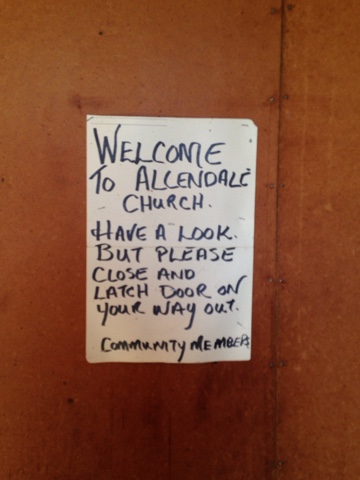 WELCOME
TO ALLENDALE
CHURCH.
HAVE A LOOK.
BUT PLEASE
CLOSE AND
LATCH DOOR ON
YOUR WAY OUT.
COMMUNITY MEMBERS